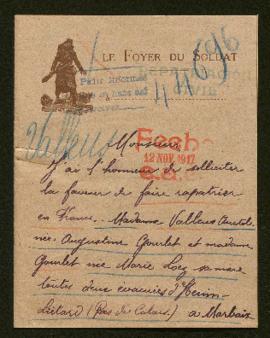 LE FOYER DU SOLDAT
41696
Valleus
12 NOV. 1917
Monsieur
J'ai l'honneur de solliciter
la faveur de faire rapatrier
en France. Madame Valleus
née Augustine Gourlet et madame
Gourlet née Marie Loez sa mère
toutes deux évacuées d'Henin-
Liétard (Pas de Calais) a Marbaix